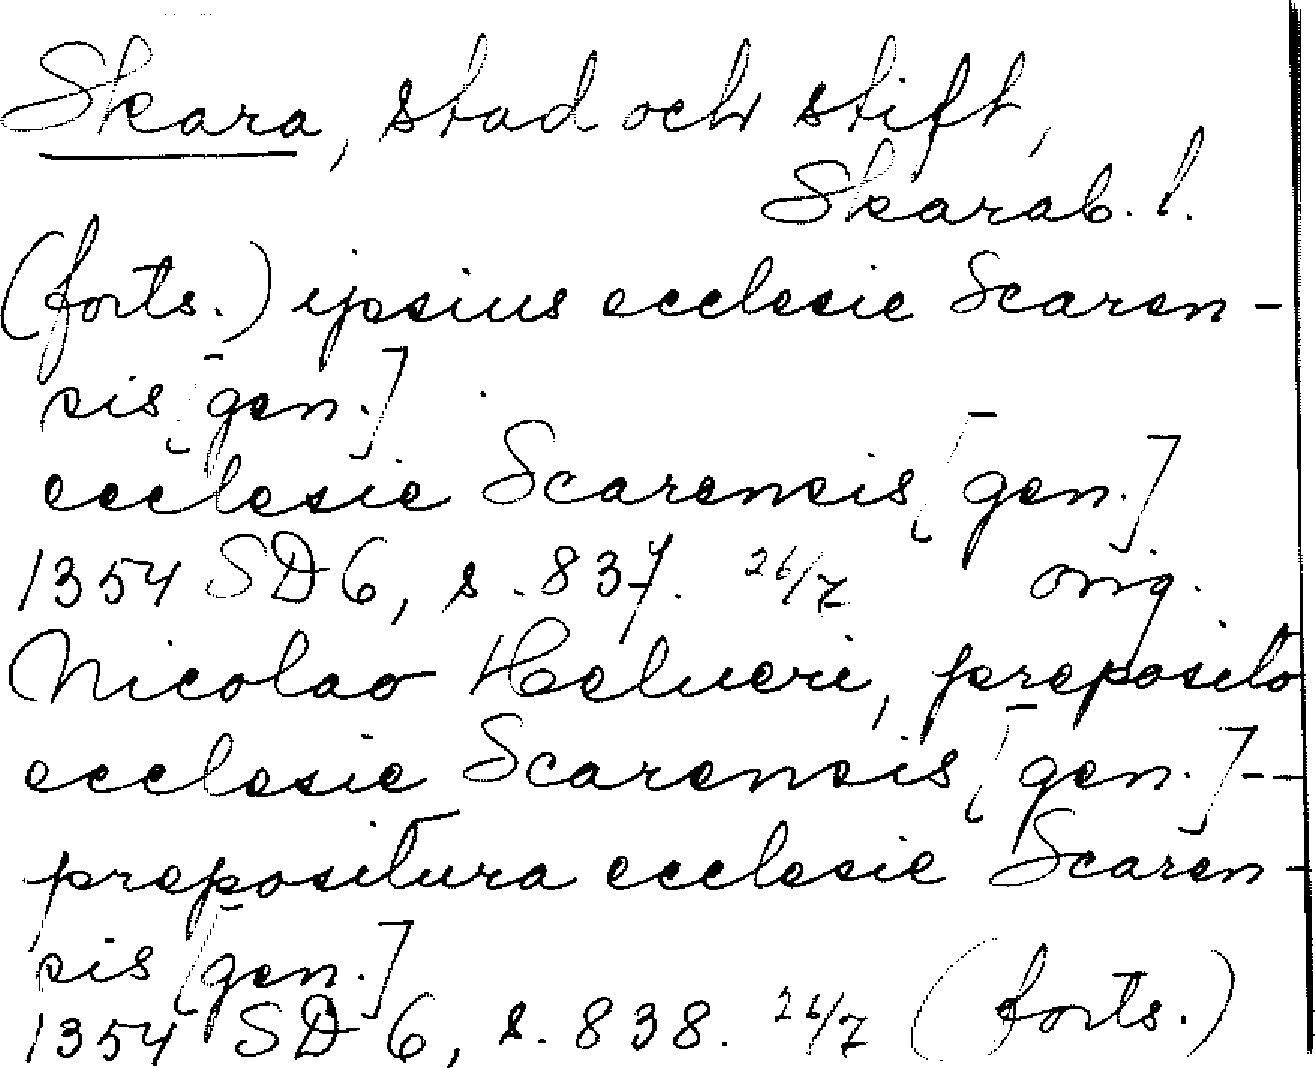 Skara, stad och stift,
Skarab. l.
(forts.) ipsius ecclesie Scaren-
sis [gen.]
ecclesie Scarensis [gen.]
1354 SD 6, s. 837. 26/7 orig.
Nicolao Helueri, preposito
ecclesie Scarensis [gen.] --
prepositura ecclesie Scaren-
sis [gen.]
1354 SD 6, s. 838. 26/7 (forts.)